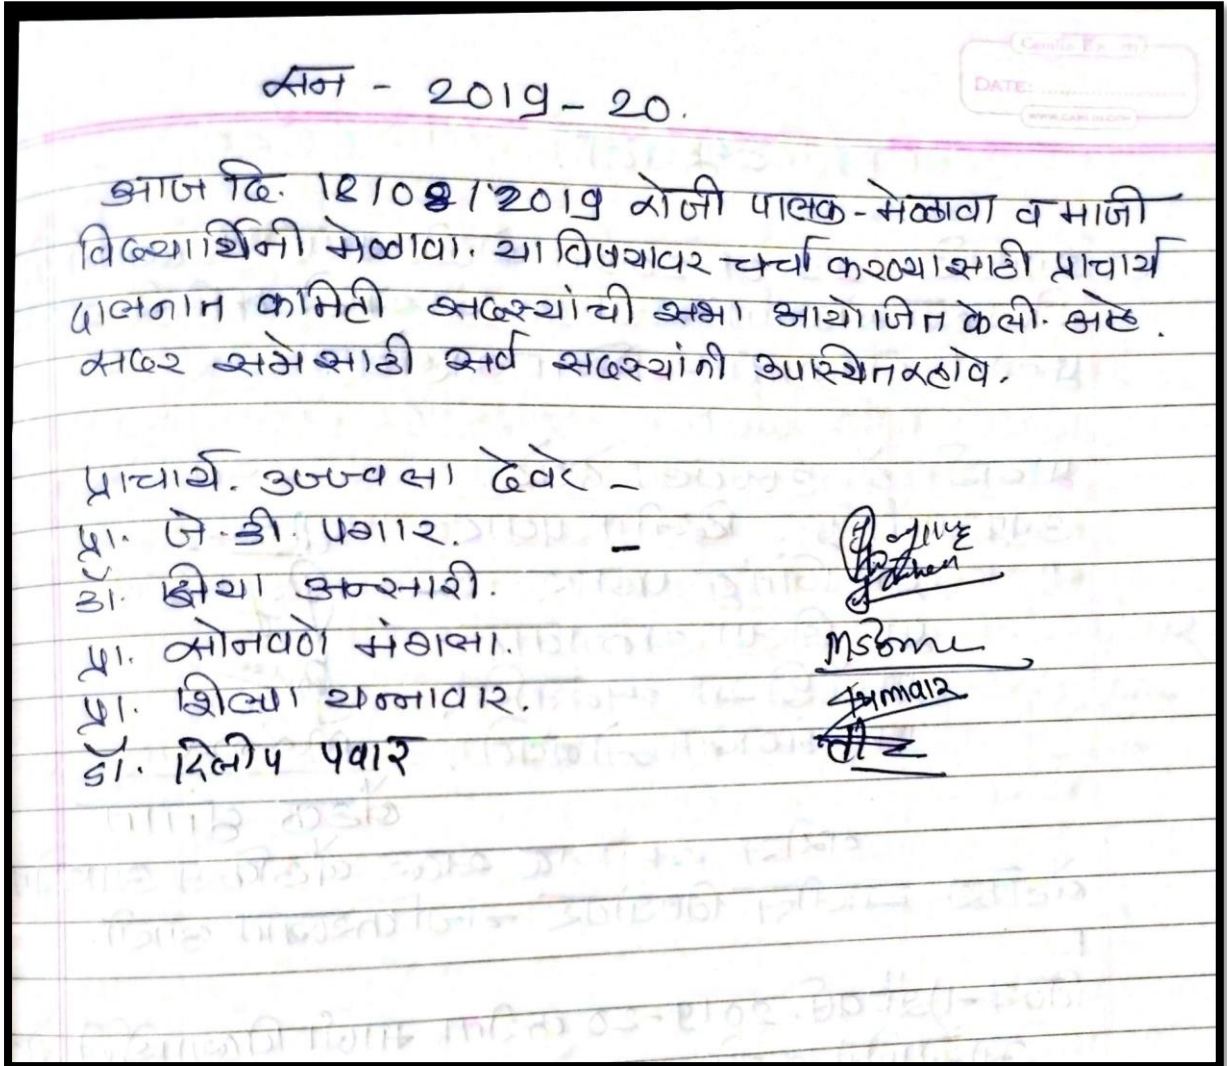 सन - 2019-20.
DATE:
आज दि. 18/08/2019 रोजी पालक-मेळावा व माजी
विद्यार्थिनी मेळावा. या विषयावर चर्चा करण्यासाठी प्राचार्य
दालनात कमिटी सदस्यांची सभा आयोजित केली. आहे.
सदर सभेसाठी सर्व सदस्यांनी उपस्थित रहावे.
प्राचार्य. उज्ज्वला देवरे -
प्रा. जे.डी. पगार. -
डॉ. झीया अन्सारी.
प्रा. सोनवणे मंगला.
प्रा. शिल्पा यन्नावार.
डॉ. दिलीप पवार